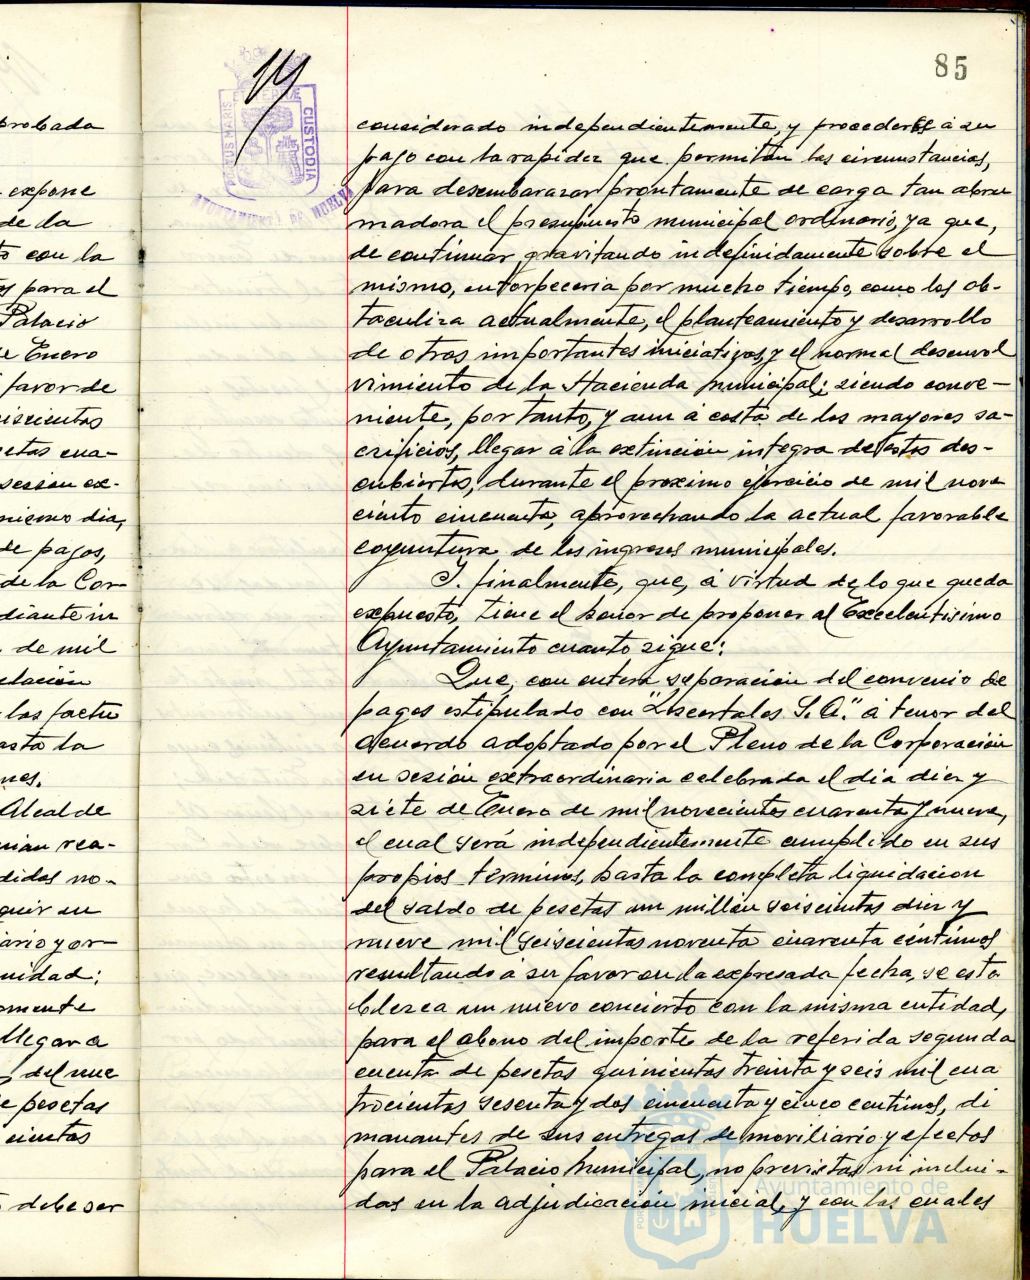 85
PORTUS MARIS
ET TERRÆ
CUSTODIA
AYUNTAMIENTO DE HUELVA
probada
expone
de la
con la
para el
Palacio
de Enero
favor de
etas cua-
sesión ex-
mismo dia,
de pagos,
de la Cor
diante in
de mil
elación
las factu
asta la
nes.
Alcalde
didas no-
quir su
ario y or-
nidad:
omente
llegar a
del nue
e pesetas
cientos
debe ser
considerado independientemente, y procederse á su
pago con la rapidez que permitan las circunstancias,
para desembarazar prontamente de carga tan abru
madora el presupuesto municipal ordinario, ya que,
de continuar gravitando indefinidamente sobre el
mismo, entorpeceria por mucho tiempo, como los ob-
taculiza actualmente, el planteamiento y desarrollo
de otras importantes iniciativas, y el normal desenvol
vimiento de la Hacienda municipal; siendo conve-
niente, por tanto, y aun á costa de los mayores sa-
crificios, llegar á la extinción integra de estos des-
cubiertos, durante el proximo ejercicio de mil nove
ciento cincuenta, aprovechando la actual favorable
coyuntura de los ingresos municipales.
Y. finalmente, que, á virtud de lo que queda
expuesto, tiene el honor de proponer al Excelentisimo
Ayuntamiento cuanto sigue:
Que, con entera separación del convenio de
pagos estipulado con "Loscertales S.A." á tenor del
acuerdo adoptado por el Pleno de la Corporación
en sesión extraordinaria celebrada el dia diez y
siete de Enero de mil novecientos cuarenta y nueve,
el cual será independientemente cumplido en sus
propios terminos, hasta la completa liquidación
del saldo de pesetas un millón seiscientas diez y
nueve mil seiscientas noventa cuarenta céntimos
resultando á su favor en la expresada fecha, se esta
blezca un nuevo concierto con la misma entidad,
para el abono del importe de la referida segunda
cuenta de pesetas quinientas treinta y seis mil cua
trocientas sesenta y dos cincuenta y cinco centimos, di
manantes de sus entregas de moviliario y efectos
para el Palacio Municipal, no previstas ni inclui-
das en la adjudicación inicial, y con las cuales
Ayuntamiento de
HUELVA